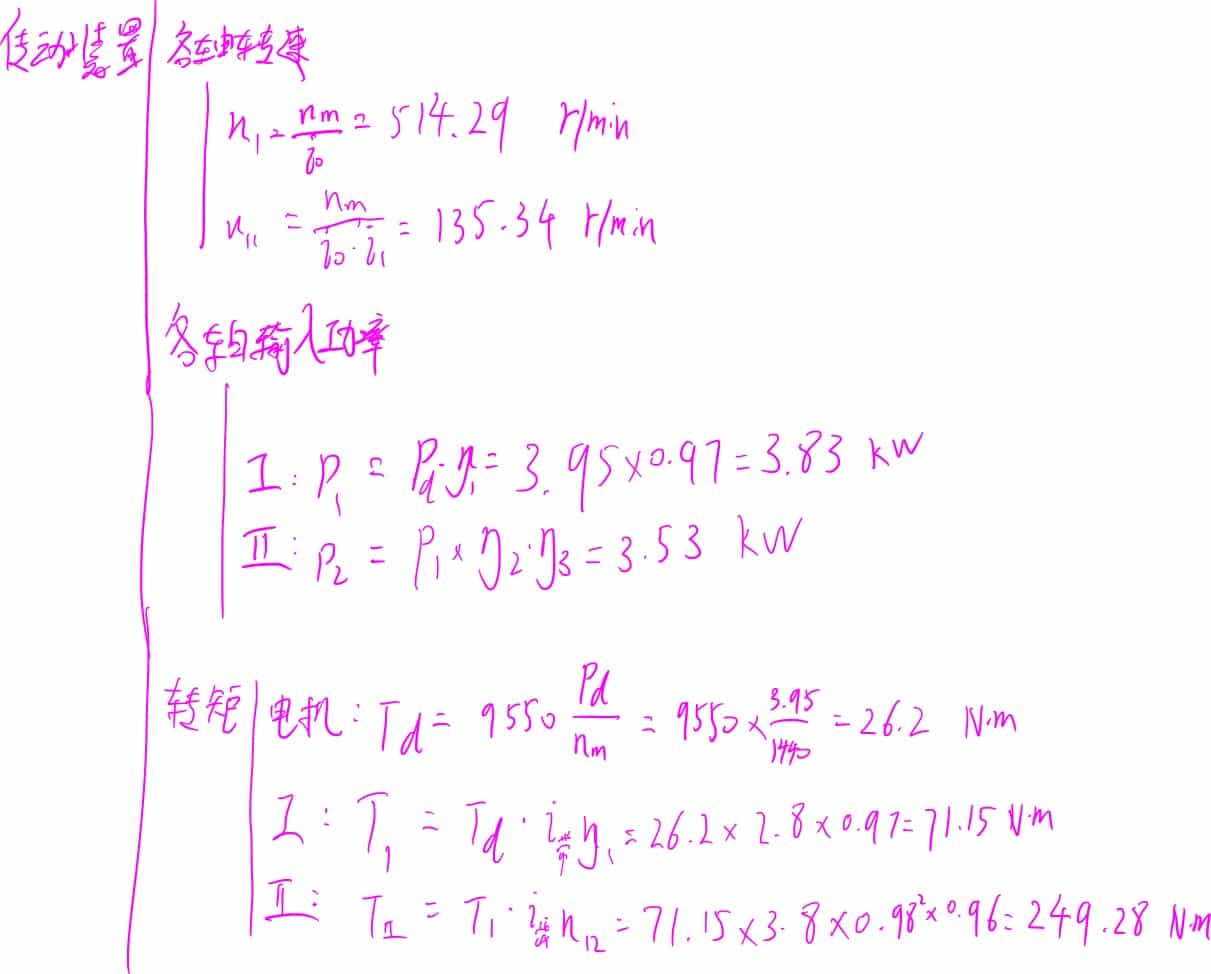 传动装置
各轴转速
n₁ = nm/i0 = 514.29 r/min
n₁₁ = nm/(i0·i1) = 135.34 r/min
各轴输入功率
I: P₁ = Pd·η₁ = 3.95×0.97 = 3.83 kW
II: P₂ = P₁×η₂·η₃ = 3.53 kW
转矩
电机: Td = 9550 Pd/nm = 9550×3.95/1440 = 26.2 N·m
I: T₁ = Td·i η₁ = 26.2×2.8×0.97 = 71.15 N·m
II: TII = T₁·i η₁₂ = 71.15×3.8×0.98²×0.96 = 249.28 N·m